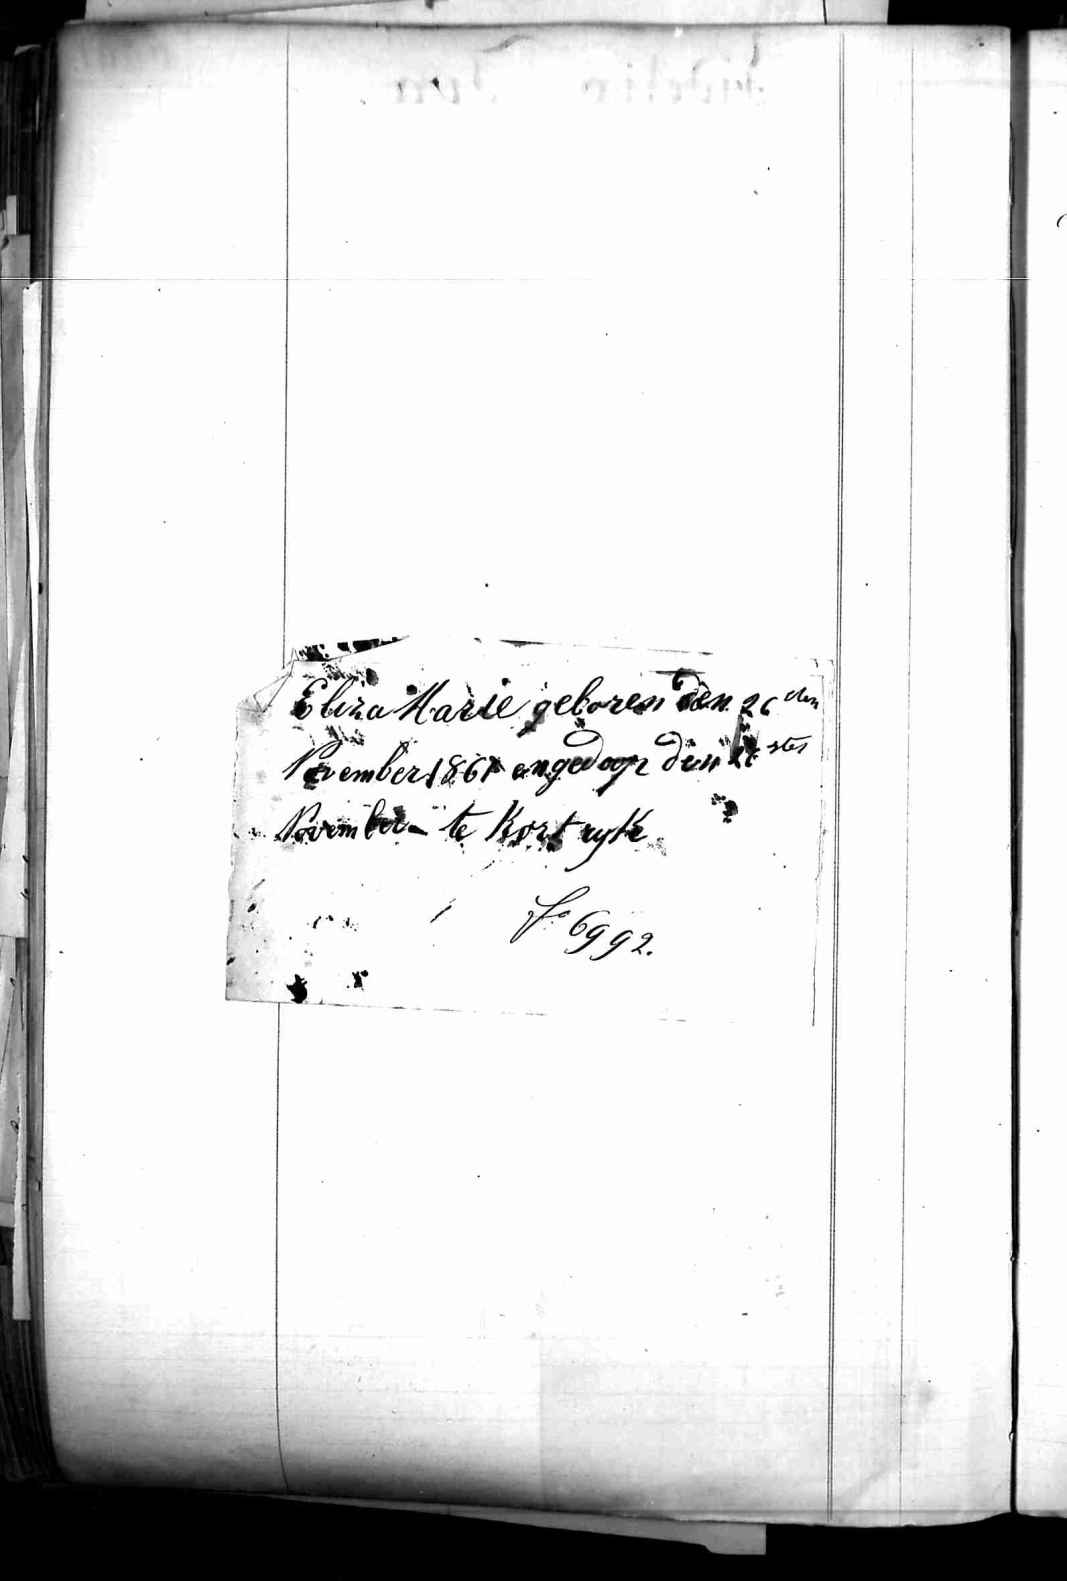 Eliza Marie geboren den 26 den
November 1861 en gedoop den 26 stes
November te Kortryk
fo 6992.